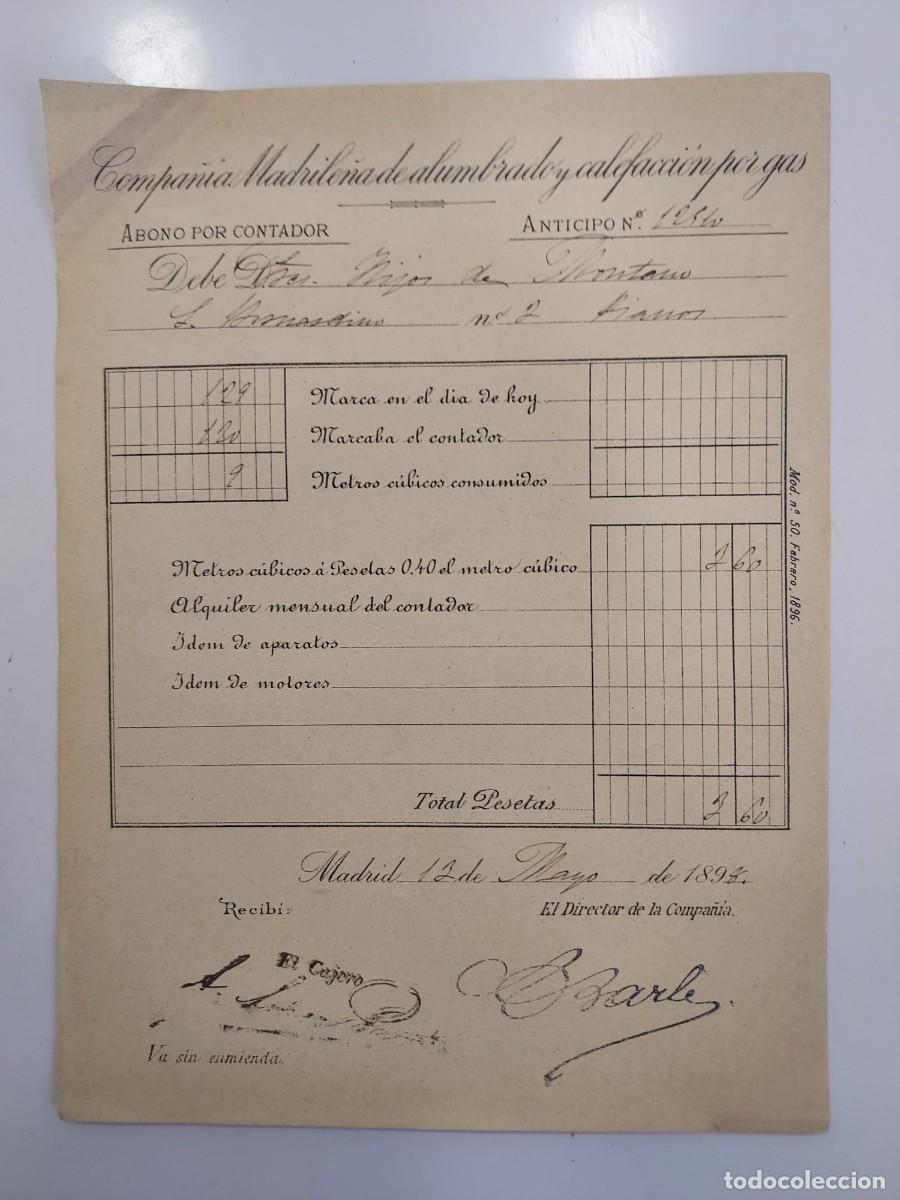 Compañia Madrileña de alumbrado y calefacción por gas
ABONO POR CONTADOR
ANTICIPO Nº.
Debe Dres. Hijos de Montano
S. Bernardino nº 3 Pianos
129 Marca en el dia de hoy
120 Marcaba el contador
9 Metros cúbicos consumidos
Metros cúbicos á Pesetas 0.40 el metro cúbico 3 60
Alquiler mensual del contador
Idem de aparatos
Idem de motores
Total Pesetas 3 60
Mod. nº 50. Febrero, 1896.
Madrid 13 de Mayo de 1898.
Recibí:
El Director de la Compañia.
El Cajero
A.
Va sin enmienda.
todocoleccion